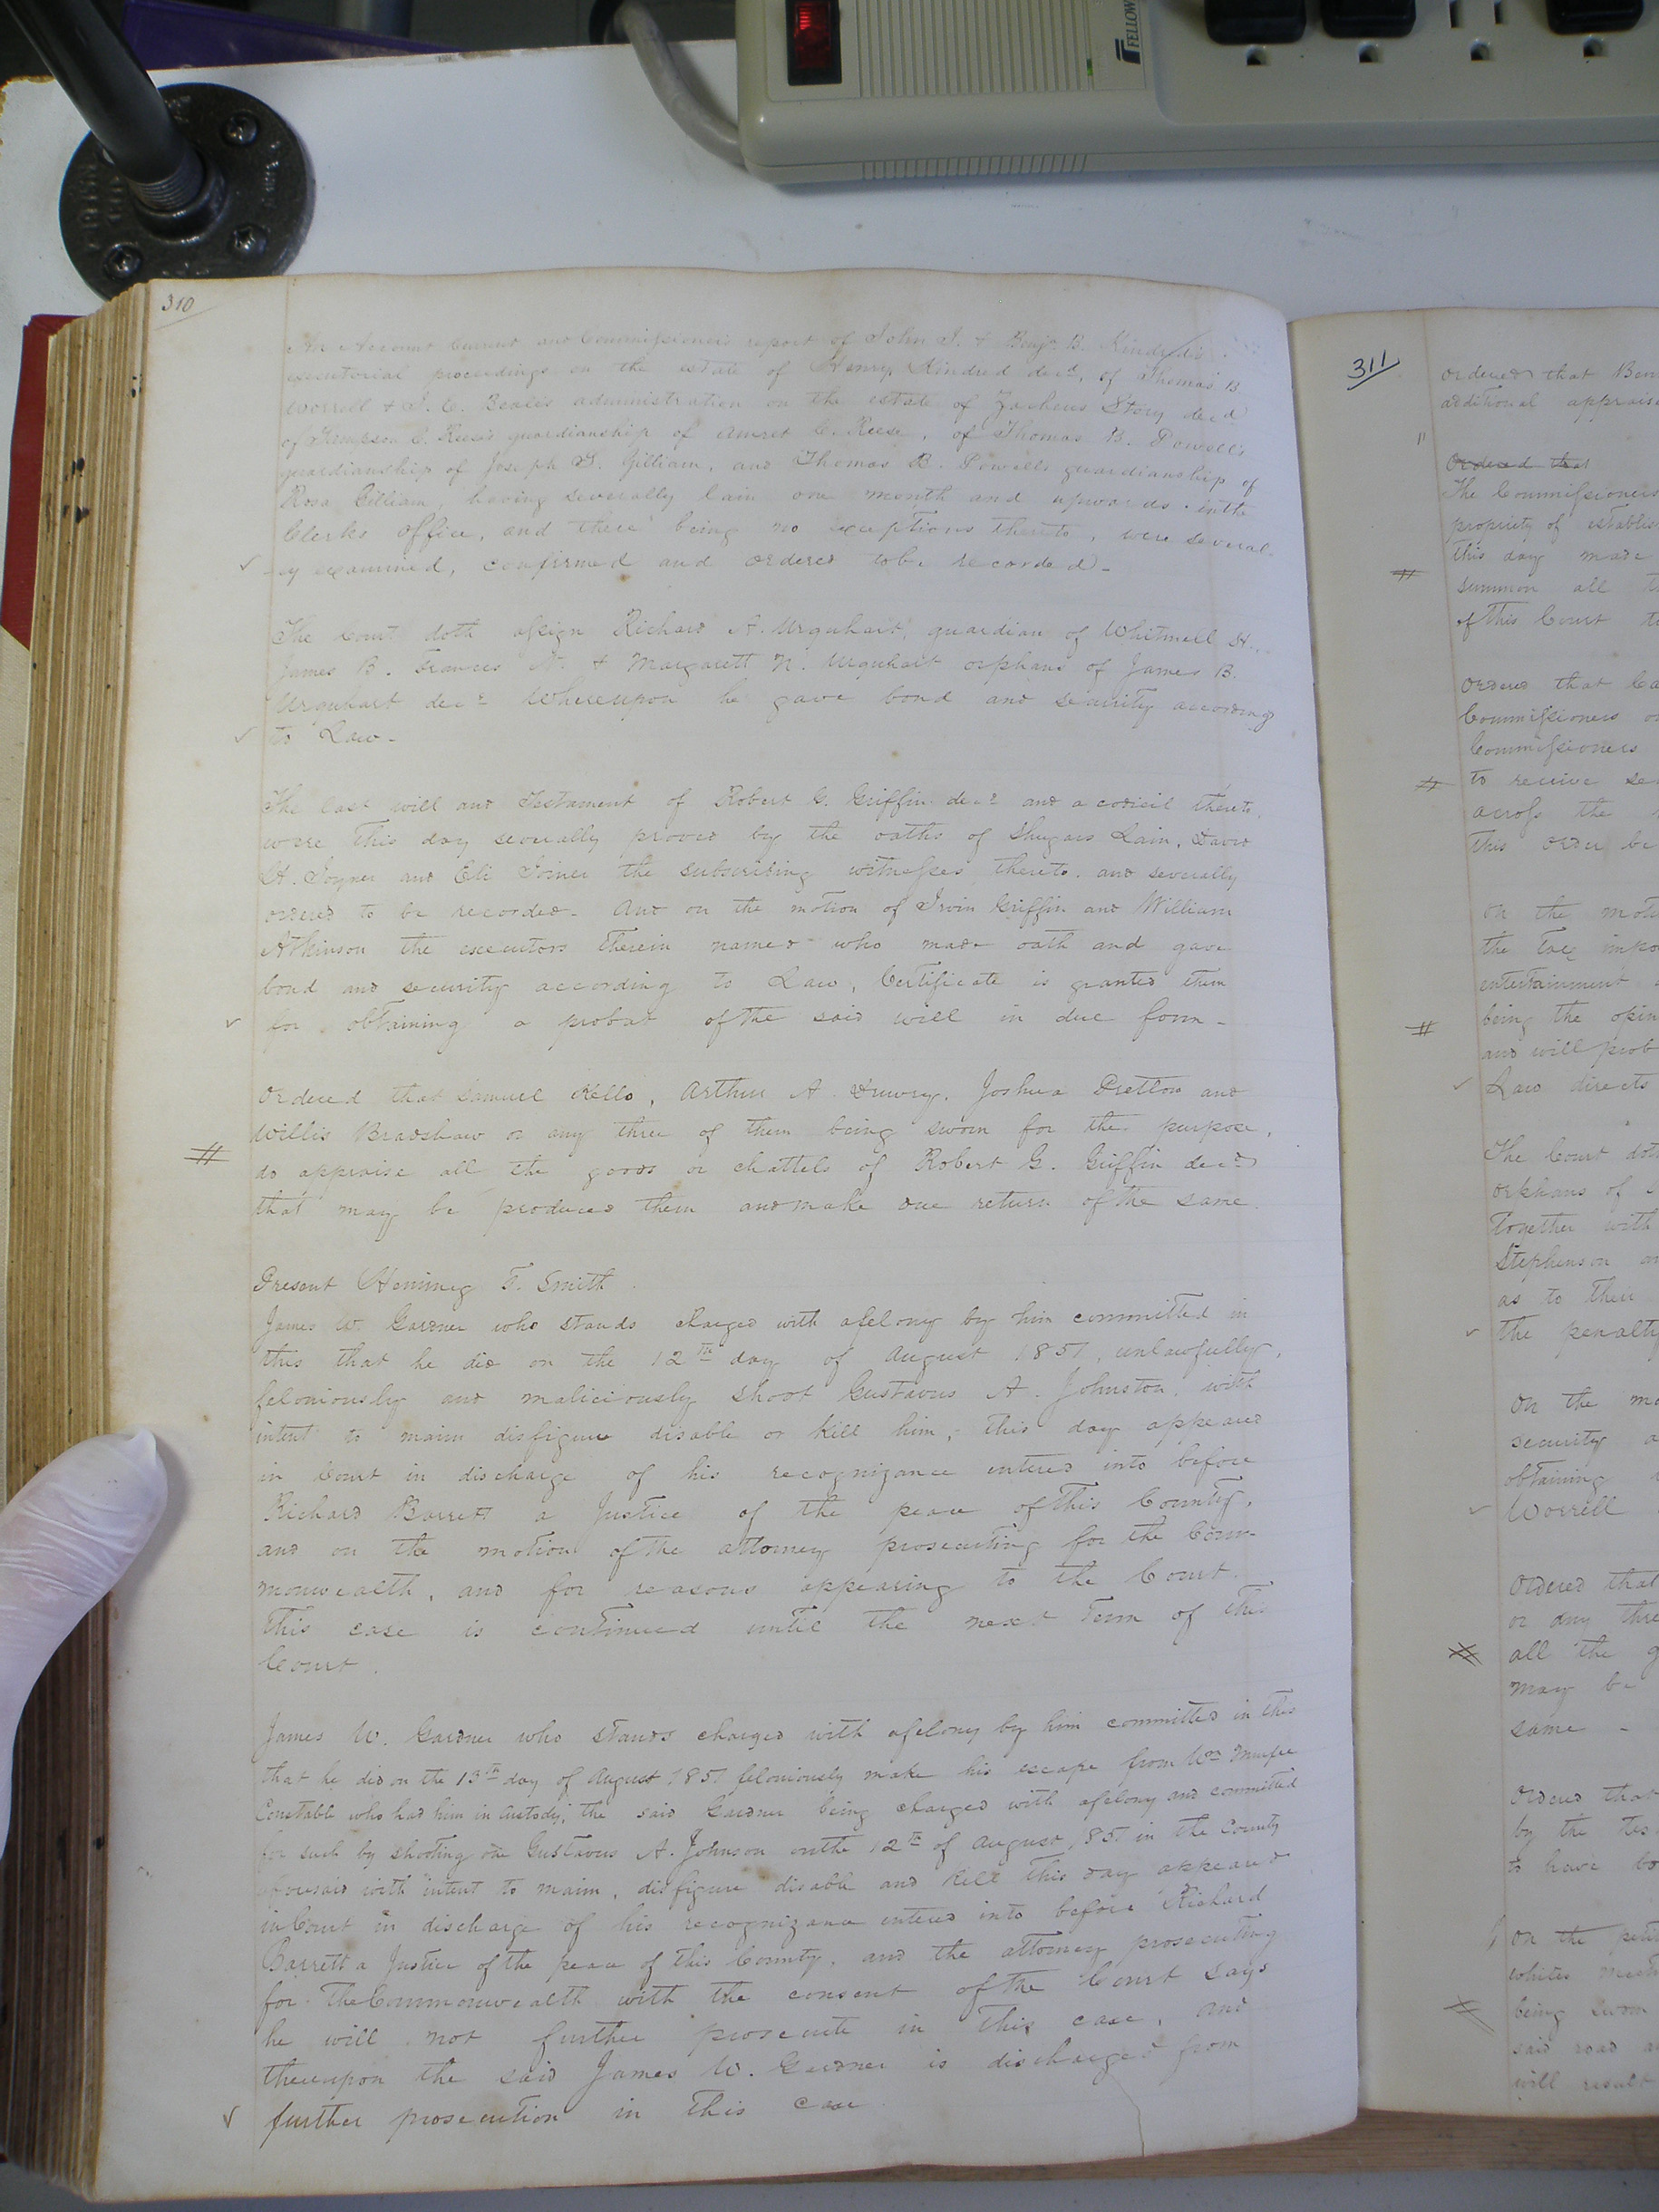 FELLOW
310
An Account Current and Commissioner's report of John J. & Benja. B. Kindred's
executorial proceedings on the estate of Henry Kindred decd, of Thomas B.
Worrell & J. C. Beale's administration on the estate of Zacheus Story decd
of C. Reese's guardianship of C. Reese, of Thomas B. Powell's
guardianship of Joseph J. Gilliam, and Thomas B. Powells guardianship of
Rosa Gilliam, having severally lain one month and upwards in the
Clerks office, and there being no exceptions thereto, were several-
-ly examined, confirmed and ordered to be recorded-
The Court doth assign Richard A. Urquhart, guardian of Whitmell H.,
James B. Frances N. & Margarett N. Urquhart orphans of James B.
Urquhart decd Whereupon he gave bond and security according
to Law-
The last will and Testament of Robert G. Griffin decd and a codicil thereto,
were this day severally proved by the oaths of Shugars Lain, David
H. Joyner and Eli Joiner the subscribing witnesses thereto, and severally
ordered to be recorded- And on the motion of Irvin Griffin and William
Atkinson the executors therein named who made oath and gave
bond and security according to Law, Certificate is granted them
for obtaining a probat of the said will in due form-
Ordered that Samuel Kello, Arthur A. Drewry, Joshua Pretlow and
Willis Bradshaw or any three of them being sworn for the purpose,
do appraise all the goods or chattels of Robert G. Griffin decd
that may be produced them and make due return of the same.
Present Henning T. Smith
James W. Gardner who stands charged with a felony by him committed in
this that he did on the 12th day of August 1851, unlawfully,
feloniously and maliciously shoot Gustavus A. Johnston, with
intent to maim disfigure disable or kill him, this day appeared
in Court in discharge of his recognizance entered into before
Richard Barrett a Justice of the peace of this County,
and on the motion of the attorney prosecuting for the Com-
monwealth, and for reasons appearing to the Court.
This case is continued until the next Term of this
Court.
James W. Gardner who stands charged with a felony by him committed in this
that he did on the 13th day of August 1851 feloniously make his escape from Wm Murfee
Constable who had him in custody, the said Gardner being charged with a felony and committed
for such by shooting one Gustavus A. Johnson on the 12th of August 1851 in the County
aforesaid with intent to maim, disfigure disable and kill This day appeared
in Court in discharge of his recognizance entered into before Richard
Barrett a Justice of the peace of this County, and the attorney prosecuting
for the Commonwealth with the consent of the Court says
he will not further prosecute in this case, and
thereupon the said James W. Gardner is discharged from
further prosecution in this case
311
ordered that
additional
Ordered that
The Commissioners
propriety of
this day made
summon all
of this Court
Ordered that
Commissioners
Commissioners
to receive
across the
this order be
On the
the Tax
entertainment
being the
and will
Law directs
The Court doth
orphans of
Together with
Stephenson
as to their
the penalty
On the
security
obtaining
Worrell
Ordered that
or any three
all the
may be
same-
Ordered that
by the
to have
On the
whites
being sworn
said road
will result